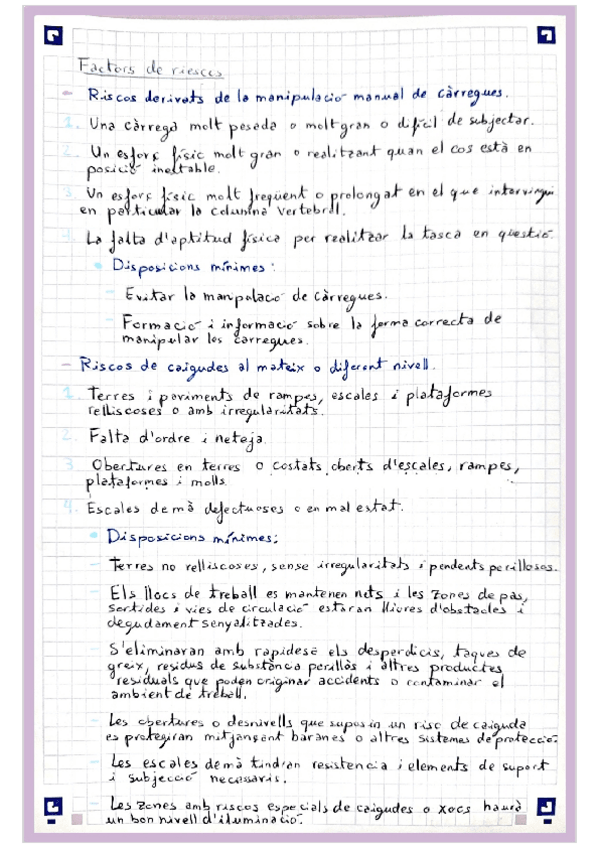 Factors de riescs
- Riscos derivats de la manipulació manual de càrregues.
1. Una càrrega molt pesada o molt gran o difícil de subjectar.
2. Un esforç físic molt gran o realitzant quan el cos està en
posició inestable.
3. Un esforç físic molt freqüent o prolongat en el que intervingui
en particular la columna vertebral.
4. La falta d'aptitud física per realitzar la tasca en qüestió.
• Disposicions mínimes:
- Evitar la manpulació de càrregues.
- Formació i informació sobre la forma correcta de
manipular les carregues.
- Riscos de caigudes al mateix o diferent nivell.
1. Terres i paviments de rampes, escales i plataformes
relliscoses o amb irregularitats.
2. Falta d'ordre i neteja.
3. Obertures en terres o costats oberts d'escales, rampes,
plataformes i molls.
4. Escales de mà defectuoses o en mal estat.
• Disposicions mínimes:
- Terres no relliscoses, sense irregularitats i pendents perilloses.
- Els llocs de treball es mantenen nets i les zones de pas,
sortides i vies de circulació estaran lliures d'obstacles i
degudament senyalitzades.
- S'eliminaran amb rapidesa els desperdicis, taques de
greix, residus de substància perillòs i altres productes
residuals que poden originar accidents o contaminar el
ambient de treball.
- Les obertures o desnivells que suposin un risc de caiguda
es protegiran mitjançant baranes o altres sistemes de protecció.
- Les escales de mà tindran resistencia i elements de suport
i subjecció necessaris.
- Les zones amb riscos especials de caigudes o xocs haurà
un bon nivell d'iluminació.